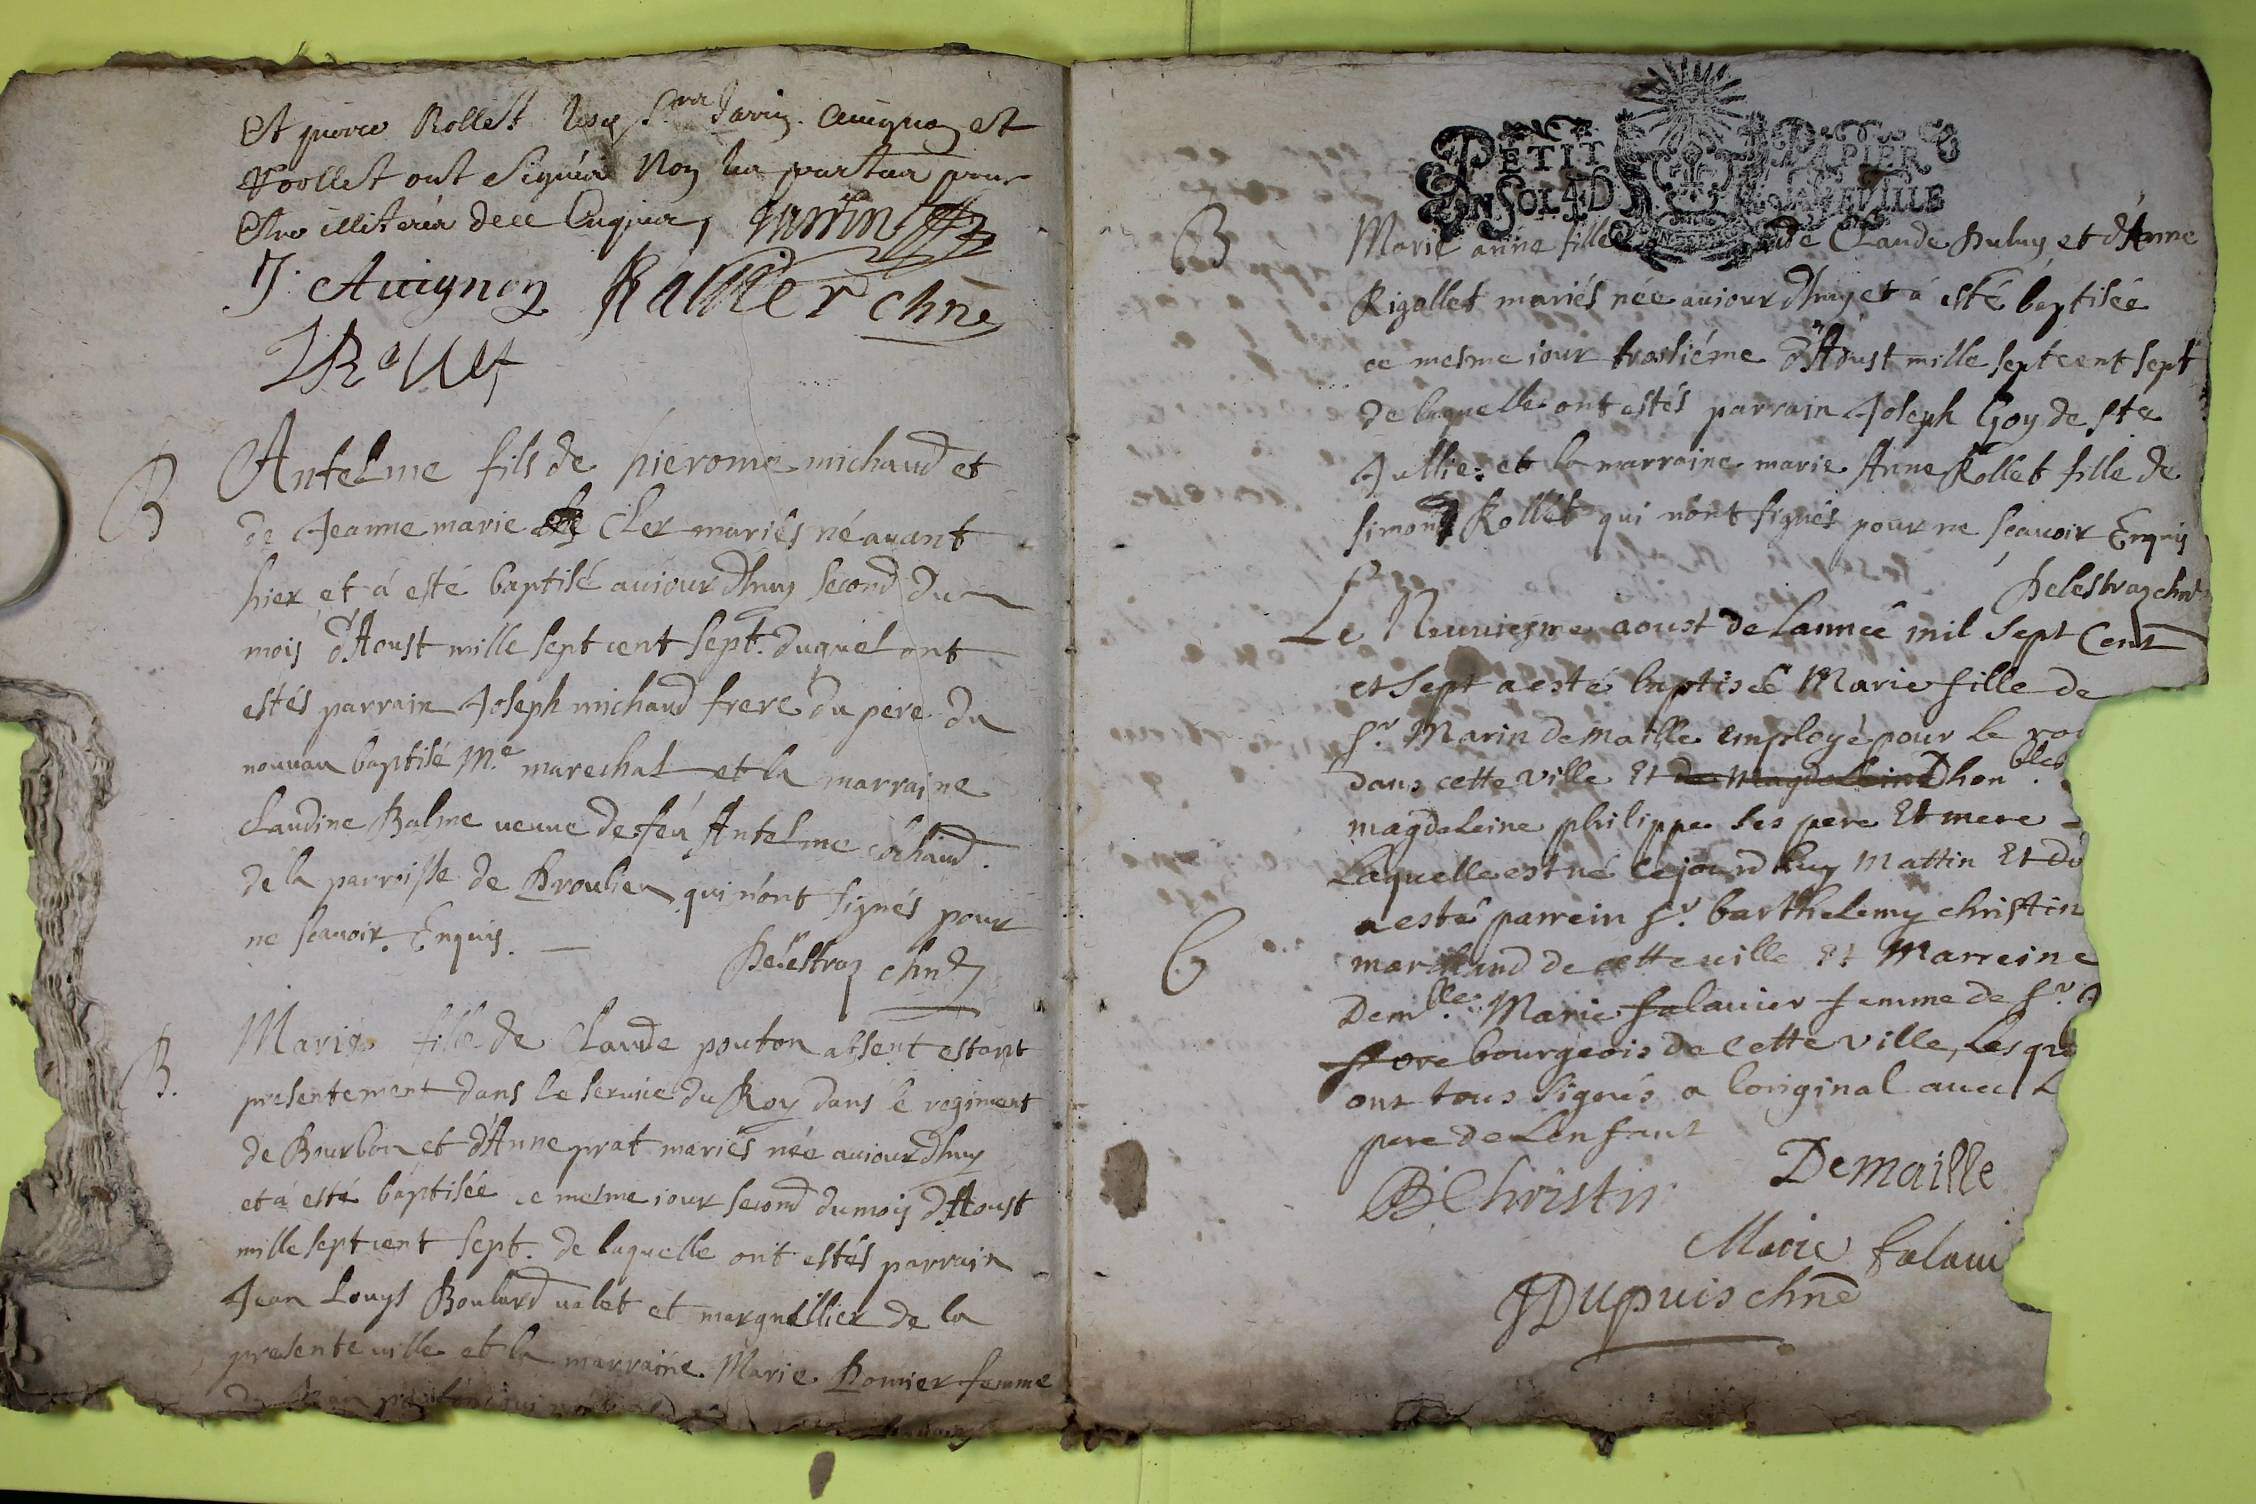 Et pierre Rollet Sr Jarrin Auignon et
Roollet ont Signéz Non les partiez pour
Estre illiteréz de ce Enquis, Jarrin
J. Auignon Rauier chne
Rollet
B Antelme fils de pierome michaud et
de Jeanne marie Cler mariés né auant
hier et à esté baptisé auiourdhuy second du
mois d'Aoust mille sept cent sept. duquel ont
estés parrain Joseph michaud frere du pere du
nouuau baptisé Me mareshal et la marraine
Claudine Balme ueuue de feu Antelme Cochaud
de la parroisse de Proulieu qui n'ont signés pour
ne scauoir. Enquis.
Delestraz chne
B. Marie fille de Claude pouton absent estant
presentement dans le seruice du Roy dans le regiment
de Bourbon et d'Anne prat mariés née auiourdhuy
et à esté baptisée ce mesme iour second du moys d'Aoust
mille sept cent sept. de laquelle ont estés parrain
Jean Louys Boulard ualet et marguillier de la
presente uille et la marraine Marie Bonnier femme
PETIT PAPIER
UN SOL 4 D LA FEUILLE
B Marie anne fille de Claude Duluy et d'Anne
Rigollet mariés née auiourdhuy et à esté baptisée
ce mesme iour troisiéme d'Aoust mille sept cent sept
de laquelle ont estés parrain Joseph Goy de Ste
Jullie: et la marraine marie Anne Rollet fille de
simon Rollet qui n'ont signés pour ne scauoir Enquis
Delestraz chne
Le Neuuiesme aoust de Lannée mil Sept Cent
et Sept a esté baptisée Marie fille de
Sr. Marin demaille employé pour le roy
dans cette ville Et de magdeleine D hon ble.
magdeleine philippe ses pere Et mere
Laquelle est né Cejourdhuy Mattin Et du
a esté parrein Sr. barthelemy christin
marchand de cette uille Et Marreine
B Dem lle. Marie falauier femme de Sr.
fore bourgeois de Cette ville, Les qu
ont tous Signés a loriginal auec L
pere de Lenfant
B Christin Demaille
Marie falaui
J Dupuis chne